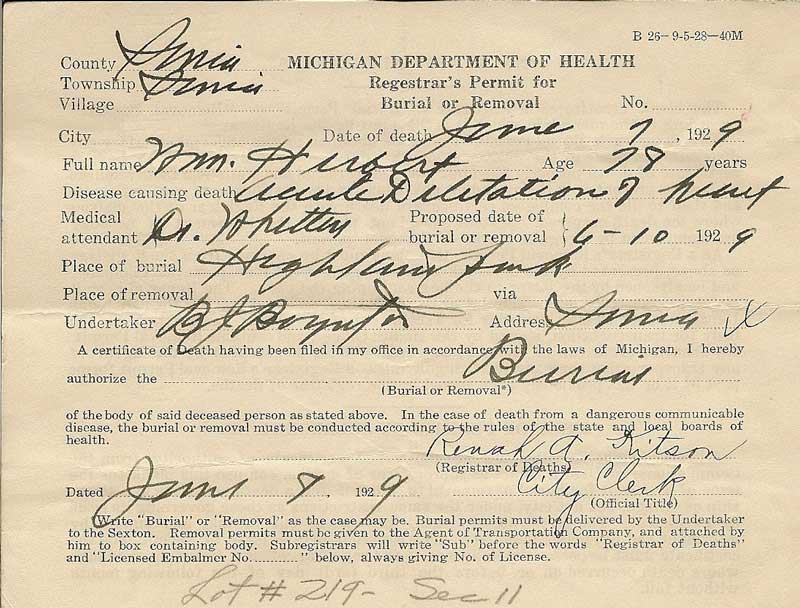 B 26-9-5-28-40M
County Ionia MICHIGAN DEPARTMENT OF HEALTH
Township Ionia Regestrar's Permit for
Village Burial or Removal No.
City Date of death June 7, 1929
Full name Wm. Herbert Age 78 years
Disease causing death Acute Diletation of heart
Medical attendant Dr. Whitten Proposed date of burial or removal 6-10 1929
Place of burial Highland Park
Place of removal via
Undertaker B J Boynton Address Ionia X
A certificate of Death having been filed in my office in accordance with the laws of Michigan, I hereby
authorize the Burial
(Burial or Removal*)
of the body of said deceased person as stated above. In the case of death from a dangerous communicable
disease, the burial or removal must be conducted according to the rules of the state and local boards of
health.
Renah A. Kitson
(Registrar of Deaths)
City Clerk
Dated June 7, 1929 (Official Title)
Write "Burial" or "Removal" as the case may be. Burial permits must be delivered by the Undertaker
to the Sexton. Removal permits must be given to the Agent of Transportation Company, and attached by
him to box containing body. Subregistrars will write "Sub" before the words "Registrar of Deaths"
and "Licensed Embalmer No. " below, always giving No. of License.
Lot # 219- Sec 11